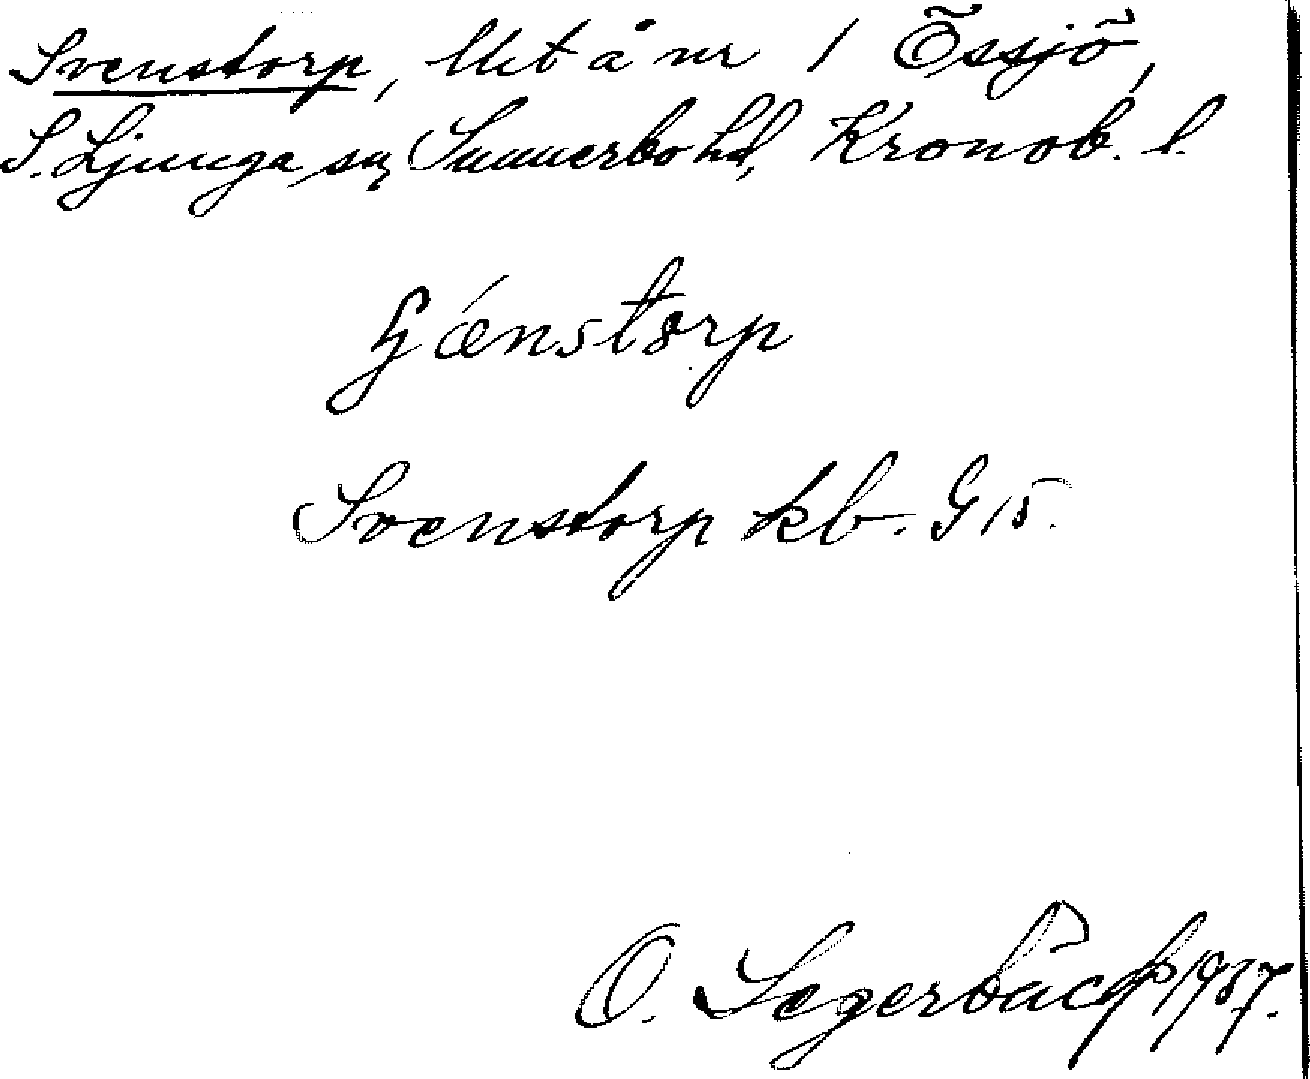 Svenstorp, Utå nr 1 Össjö,
S. Ljunga sn, Sunnerbo hd, Kronob. l.
Svenstorp kb. G 15.
O. Segerbäck 1937.